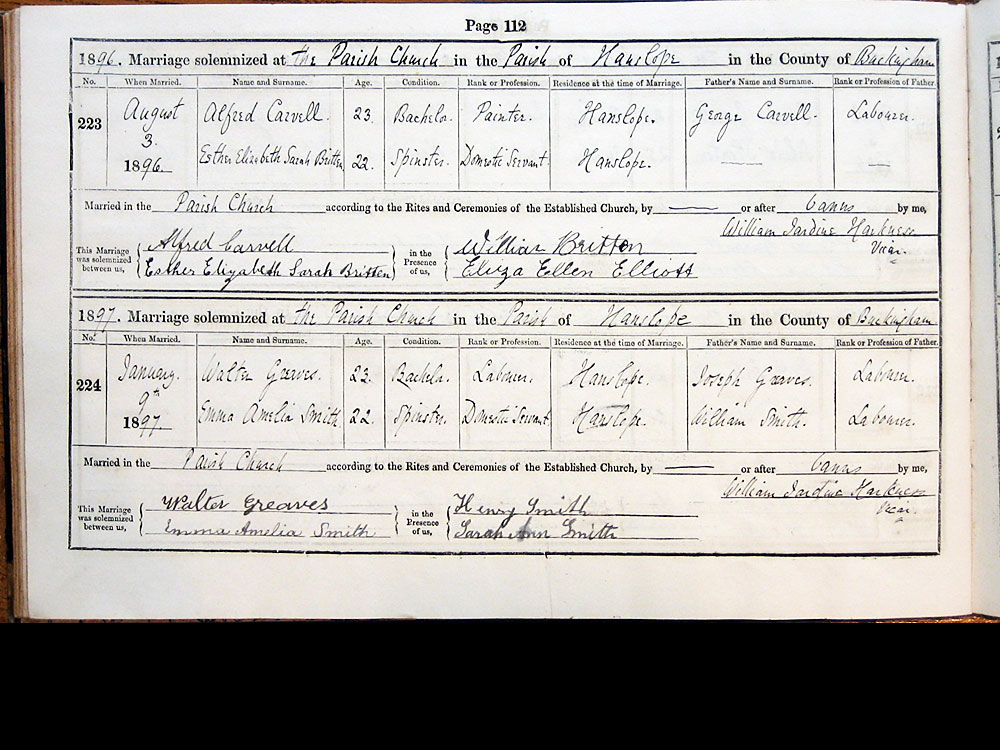 Page 112
1896. Marriage solemnized at the Parish Church in the Parish of Hanslope in the County of Buckingham
No. When Married. Name and Surname. Age. Condition. Rank or Profession. Residence at the time of Marriage. Father's Name and Surname. Rank or Profession of Father.
223 August 3. 1896. Alfred Carvell. 23. Bachelor. Painter. Hanslope. George Carvell. Labourer.
Esther Elizabeth Sarah Britten 22. Spinster. Domestic Servant. Hanslope. —
Married in the Parish Church according to the Rites and Ceremonies of the Established Church, by — or after banns by me,
William Jardine Harkness
Vicar.
This Marriage was solemnized between us, Alfred Carvell in the Presence of us, William Britton
Esther Elizabeth Sarah Britten Eliza Ellen Elliott
1897. Marriage solemnized at the Parish Church in the Parish of Hanslope in the County of Buckingham
No. When Married. Name and Surname. Age. Condition. Rank or Profession. Residence at the time of Marriage. Father's Name and Surname. Rank or Profession of Father.
224 January 9th 1897 Walter Greaves. 23. Bachelor. Labourer. Hanslope. Joseph Greaves. Labourer.
Emma Amelia Smith 22. Spinster. Domestic Servant. Hanslope. William Smith. Labourer.
Married in the Parish Church according to the Rites and Ceremonies of the Established Church, by — or after banns by me,
William Jardine Harkness
Vicar.
This Marriage was solemnized between us, Walter Greaves in the Presence of us, Henry Smith
Emma Amelia Smith Sarah Ann Smith